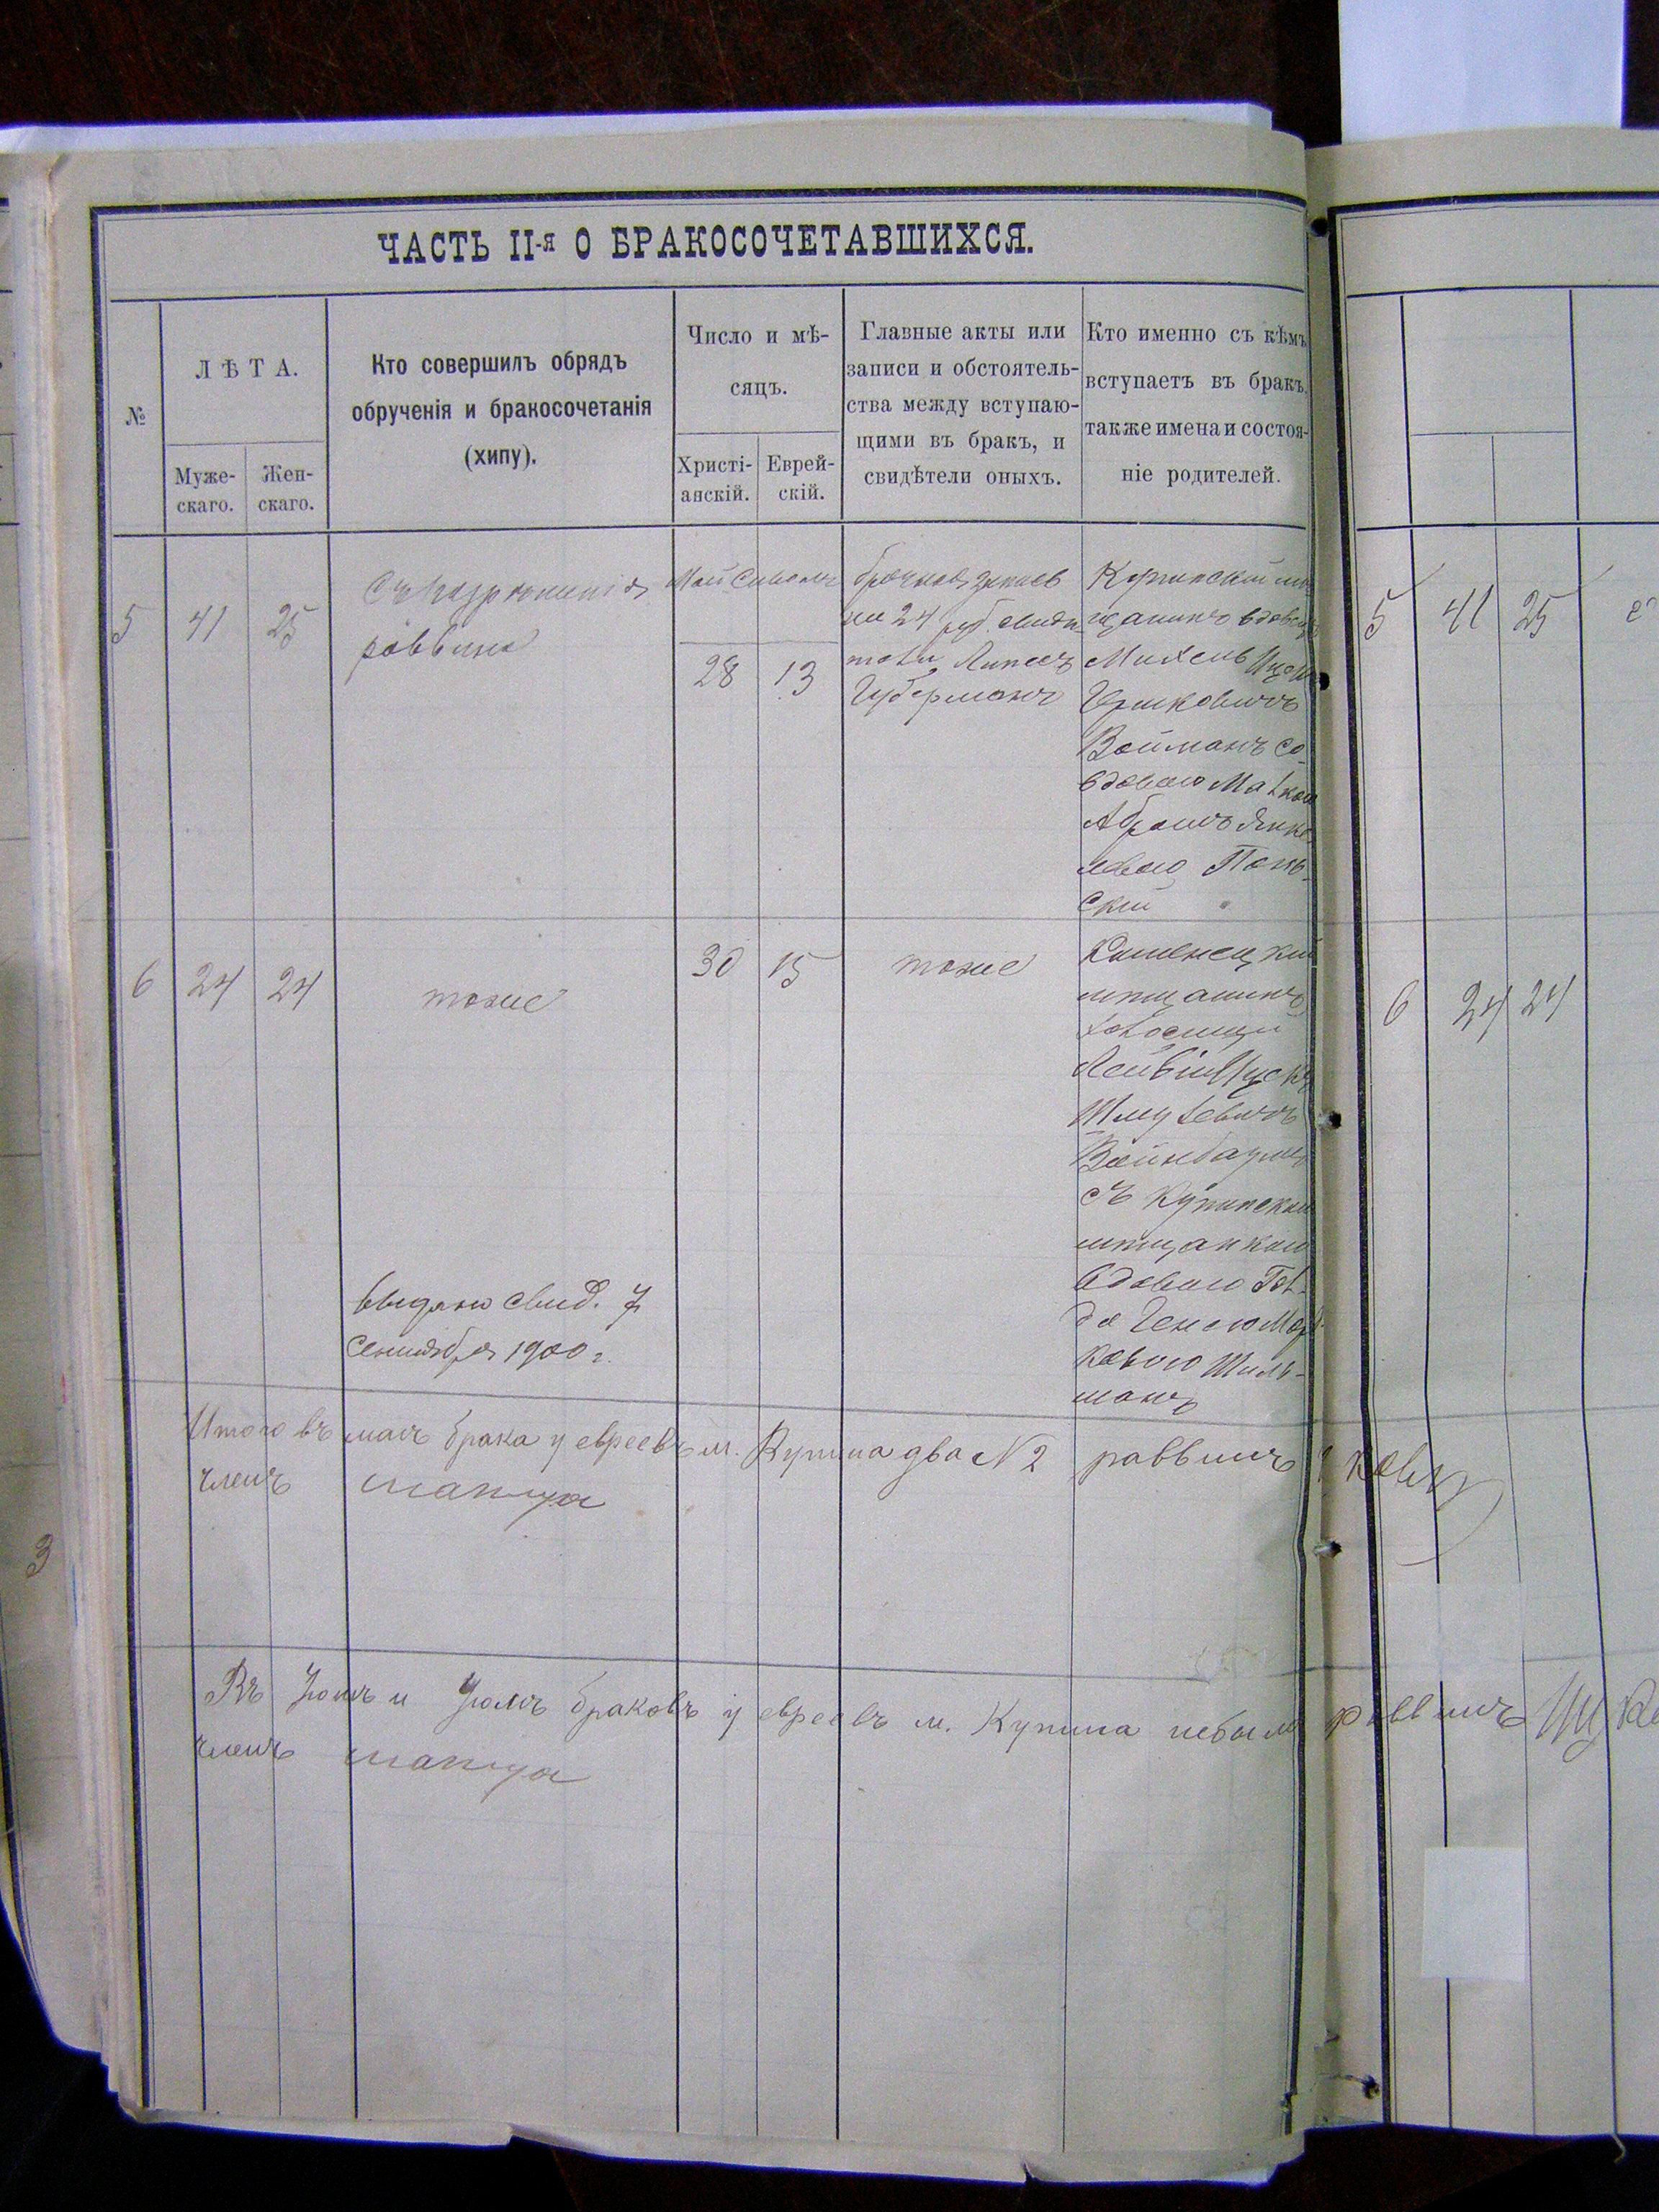 ЧАСТЬ II-я О БРАКОСОЧЕТАВШИХСЯ.
№
ЛѢТА.
Муже-
скаго.
Жен-
скаго.
Кто совершилъ обрядъ
обрученія и бракосочетанія
(хипу).
Число и мѣ-
сяцъ.
Христі-
анскій.
Еврей-
скій.
Главные акты или
записи и обстоятель-
ства между вступаю-
щими въ бракъ, и
свидѣтели оныхъ.
Кто именно съ кѣмъ
вступаетъ въ бракъ,
также имена и состоя-
ніе родителей.
5
41
25
Съ разрѣшенія
раввина
Май Сивонъ
28
13
брачная запись
на 24 руб. свидѣ
тели
Губерманъ
Купинскій мѣ
щанинъ вдовецъ
Михель
Гершковичъ
Вайманъ со
вдовою
Абрамъ Янке
левою
ской
6
24
24
тоже
30
15
тоже
Каменецкій
мѣщанинъ
Шмулевичъ
Вайнбаумъ
съ Купинской
мѣщанкой
вдовою Гол
да Генею Мор
ковою Шиль-
манъ
выдано свид. 7
Сентября 1900 г.
Итого въ маѣ брака у евреевъ м. Купина два № 2 раввинъ
членъ
Въ Іюнѣ и Іюлѣ браковъ у евреевъ м. Купина небыло раввинъ
членъ
5 41 25
6 24 24
3